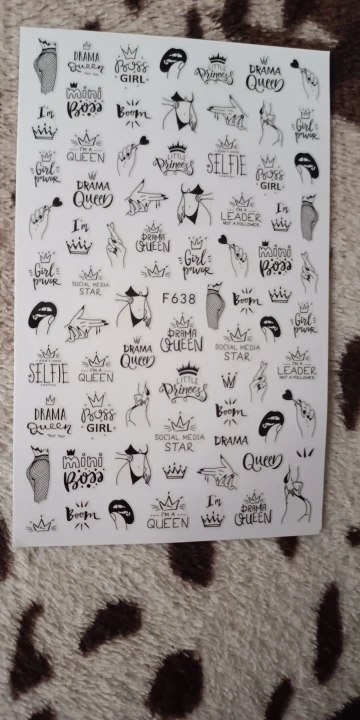 DRAMA
Queen
Boss
GIRL
LITTLE
Princess
DRAMA
Queen
I'm
mini
Boss
Boom
Girl
Power
I'M A
QUEEN
LITTLE
Princess
SELFIE
Boss
GIRL
Girl
Power
DRAMA
Queen
I'M A
LEADER
NOT A FOLLOWER
I'm
I'm
DRAMA
QUEEN
Girl
Power
Girl
Power
mini
Boss
SOCIAL MEDIA
STAR
F638
Boom
Girl
Power
DRAMA
QUEEN
SOCIAL MEDIA
STAR
SELFIE
I'M A
QUEEN
DRAMA
Queen
I'M A
LEADER
NOT A FOLLOWER
LITTLE
Princess
DRAMA
Queen
Boss
GIRL
Boom
SOCIAL MEDIA
STAR
DRAMA
Queen
mini
Boss
Boom
I'M A
QUEEN
I'm
DRAMA
QUEEN